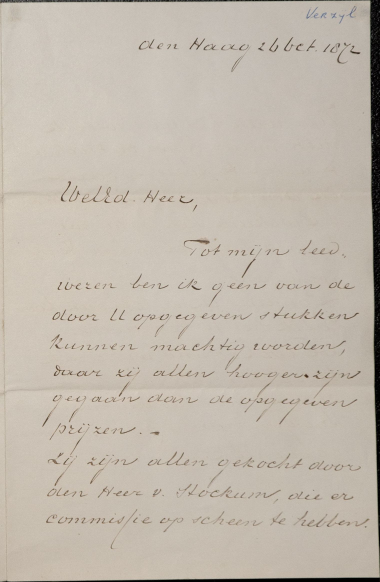 Verzyl
den Haag 26 Oct. 1872
WelEd. Heer,
Tot mijn leed-
wezen ben ik geen van de
door U opgegeven stukken
kunnen machtig worden,
daar zij allen hooger zijn
gegaan dan de opgegeven
prijzen. —
Zij zijn allen gekocht door
den Heer v. Stockum, die er
commissie op scheen te hebben.